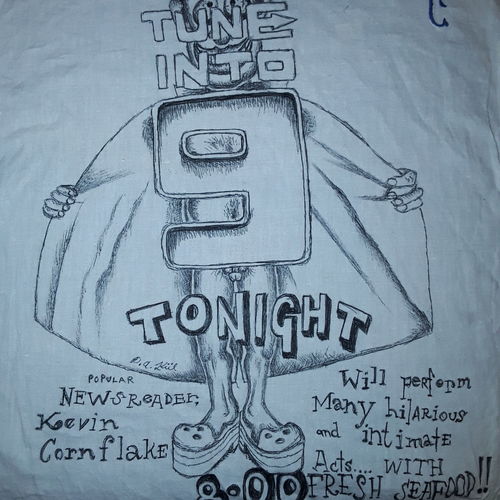 TUNE
INTO
9
TONIGHT
POPULAR
NEWSREADER
Kevin
Cornflake
Will perform
Many hilarious
and intimate
Acts.... WITH
FRESH SEAFOOD!!
8.00